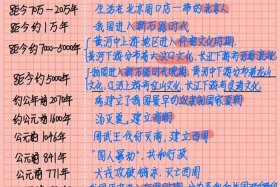 距今70万~20万年 生活在北京周口店一带的北京人
距今1万年 我国进入新石器时代
距今约7000-5000年 黄河中上游地区进入仰韶文化时期,
黄河下游分布着大汶口文化,长江下游有
距今约5000年 我国进入新石器时代晚期,黄河中下游分布着龙山
文化,辽河上游有红山文化,长江下游有良渚文化
约公元前2070年 禹建立了我国最早的
约公元前1600年 汤灭夏,建立商朝
公元前1046年 周武王伐纣灭商,建立西周
公元前841年 "国人暴动",共和行政
公元前771年 犬戎攻破镐京,灭亡西周